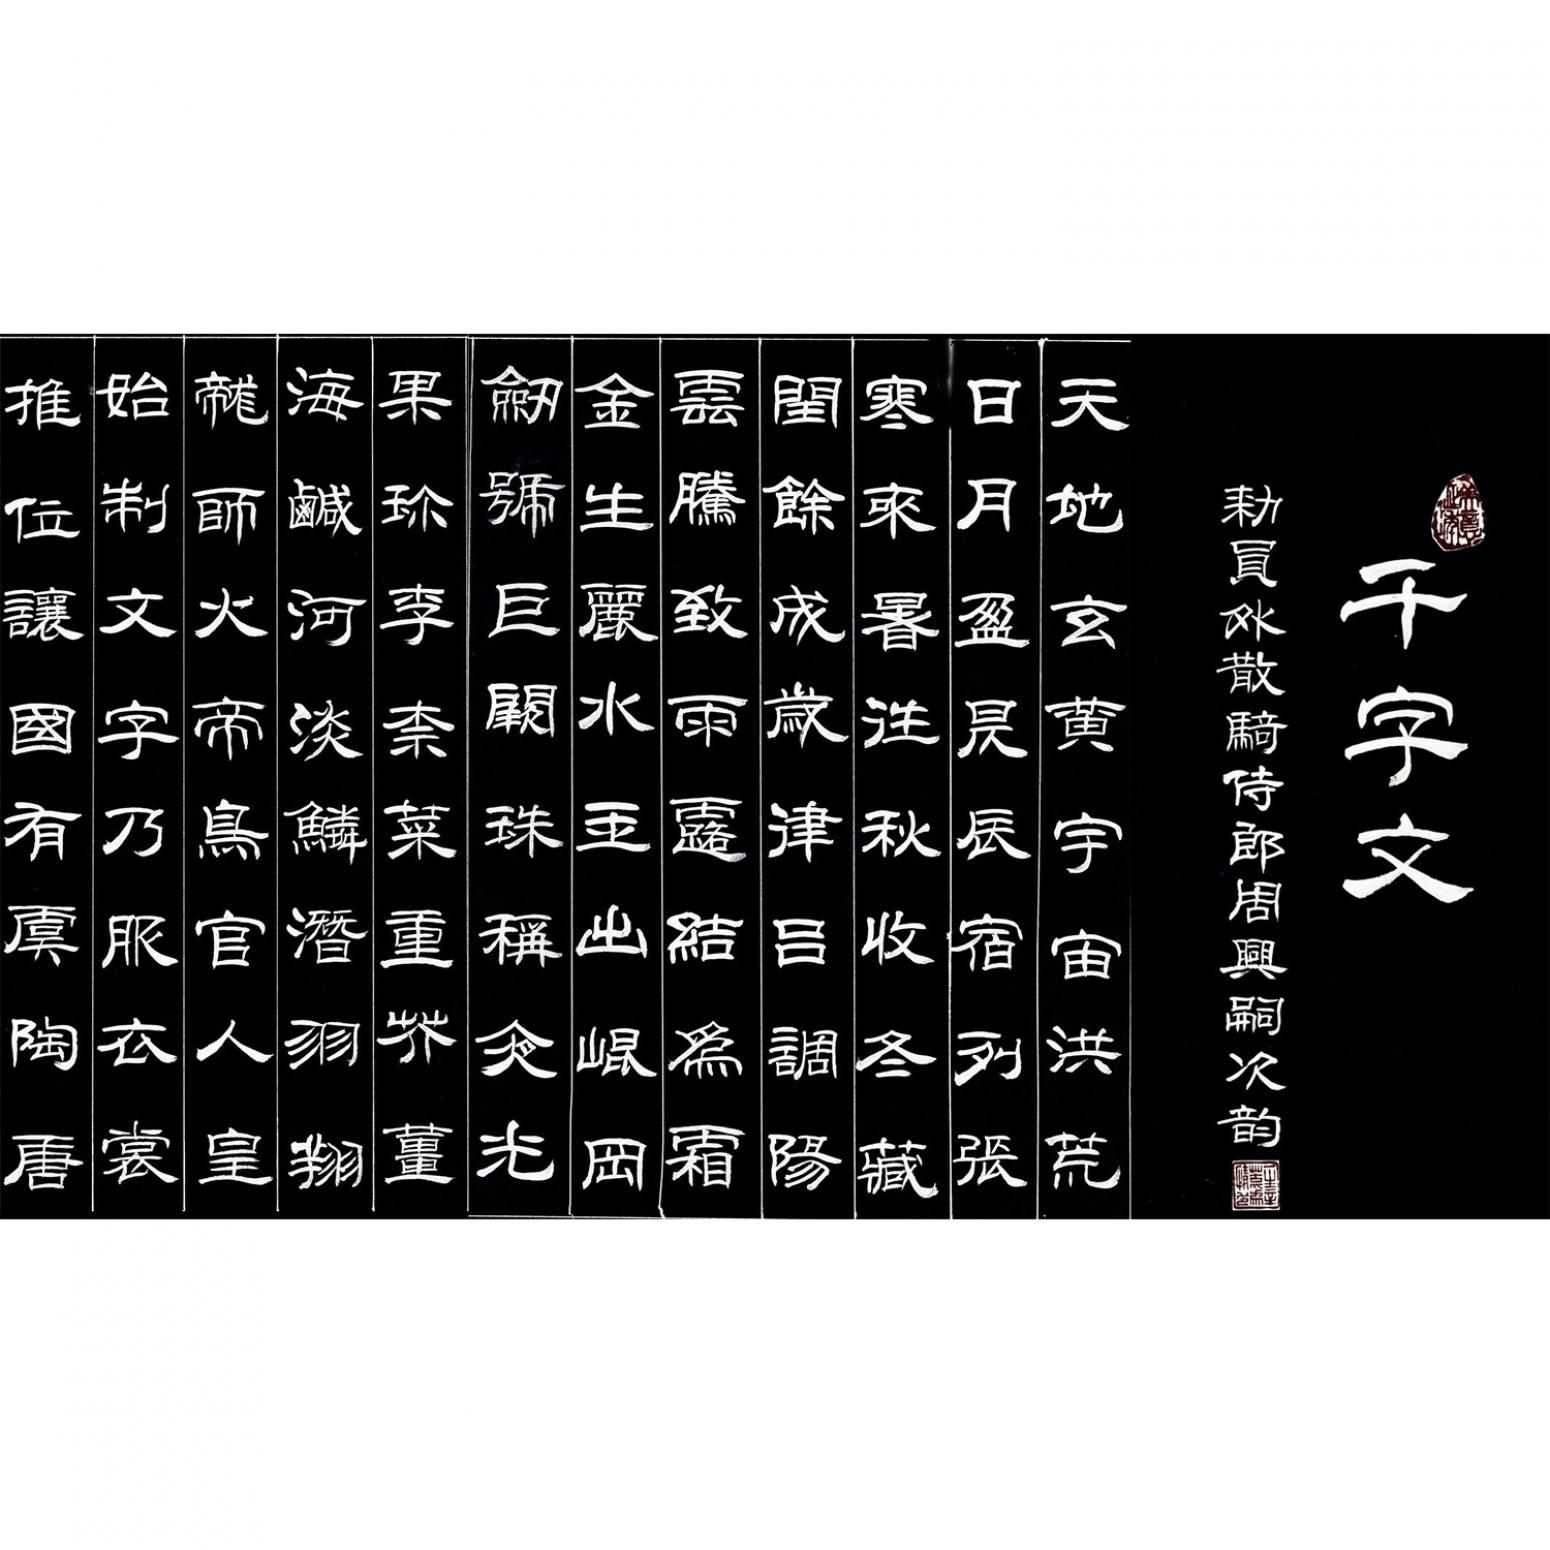 千字文
勅員外散騎侍郎周興嗣次韵
天地玄黄宇宙洪荒
日月盈昃辰宿列張
寒來暑往秋收冬藏
閏餘成歲律吕調陽
雲騰致雨露結爲霜
金生麗水玉出崐岡
劒號巨闕珠稱夜光
果珎李柰菜重芥薑
海鹹河淡鱗潛羽翔
龍師火帝鳥官人皇
始制文字乃服衣裳
推位讓國有虞陶唐